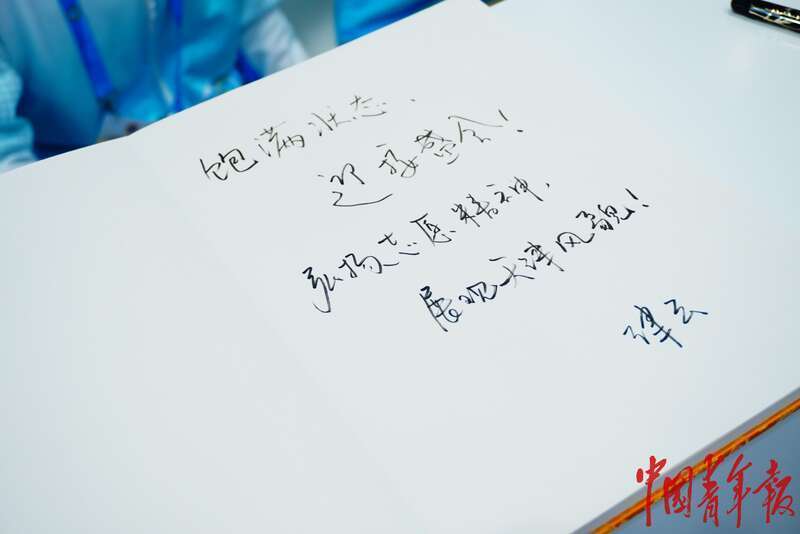 饱满状态，
迎接盛会！
弘扬志愿精神，
展现天津风貌！
津云
中国青年报